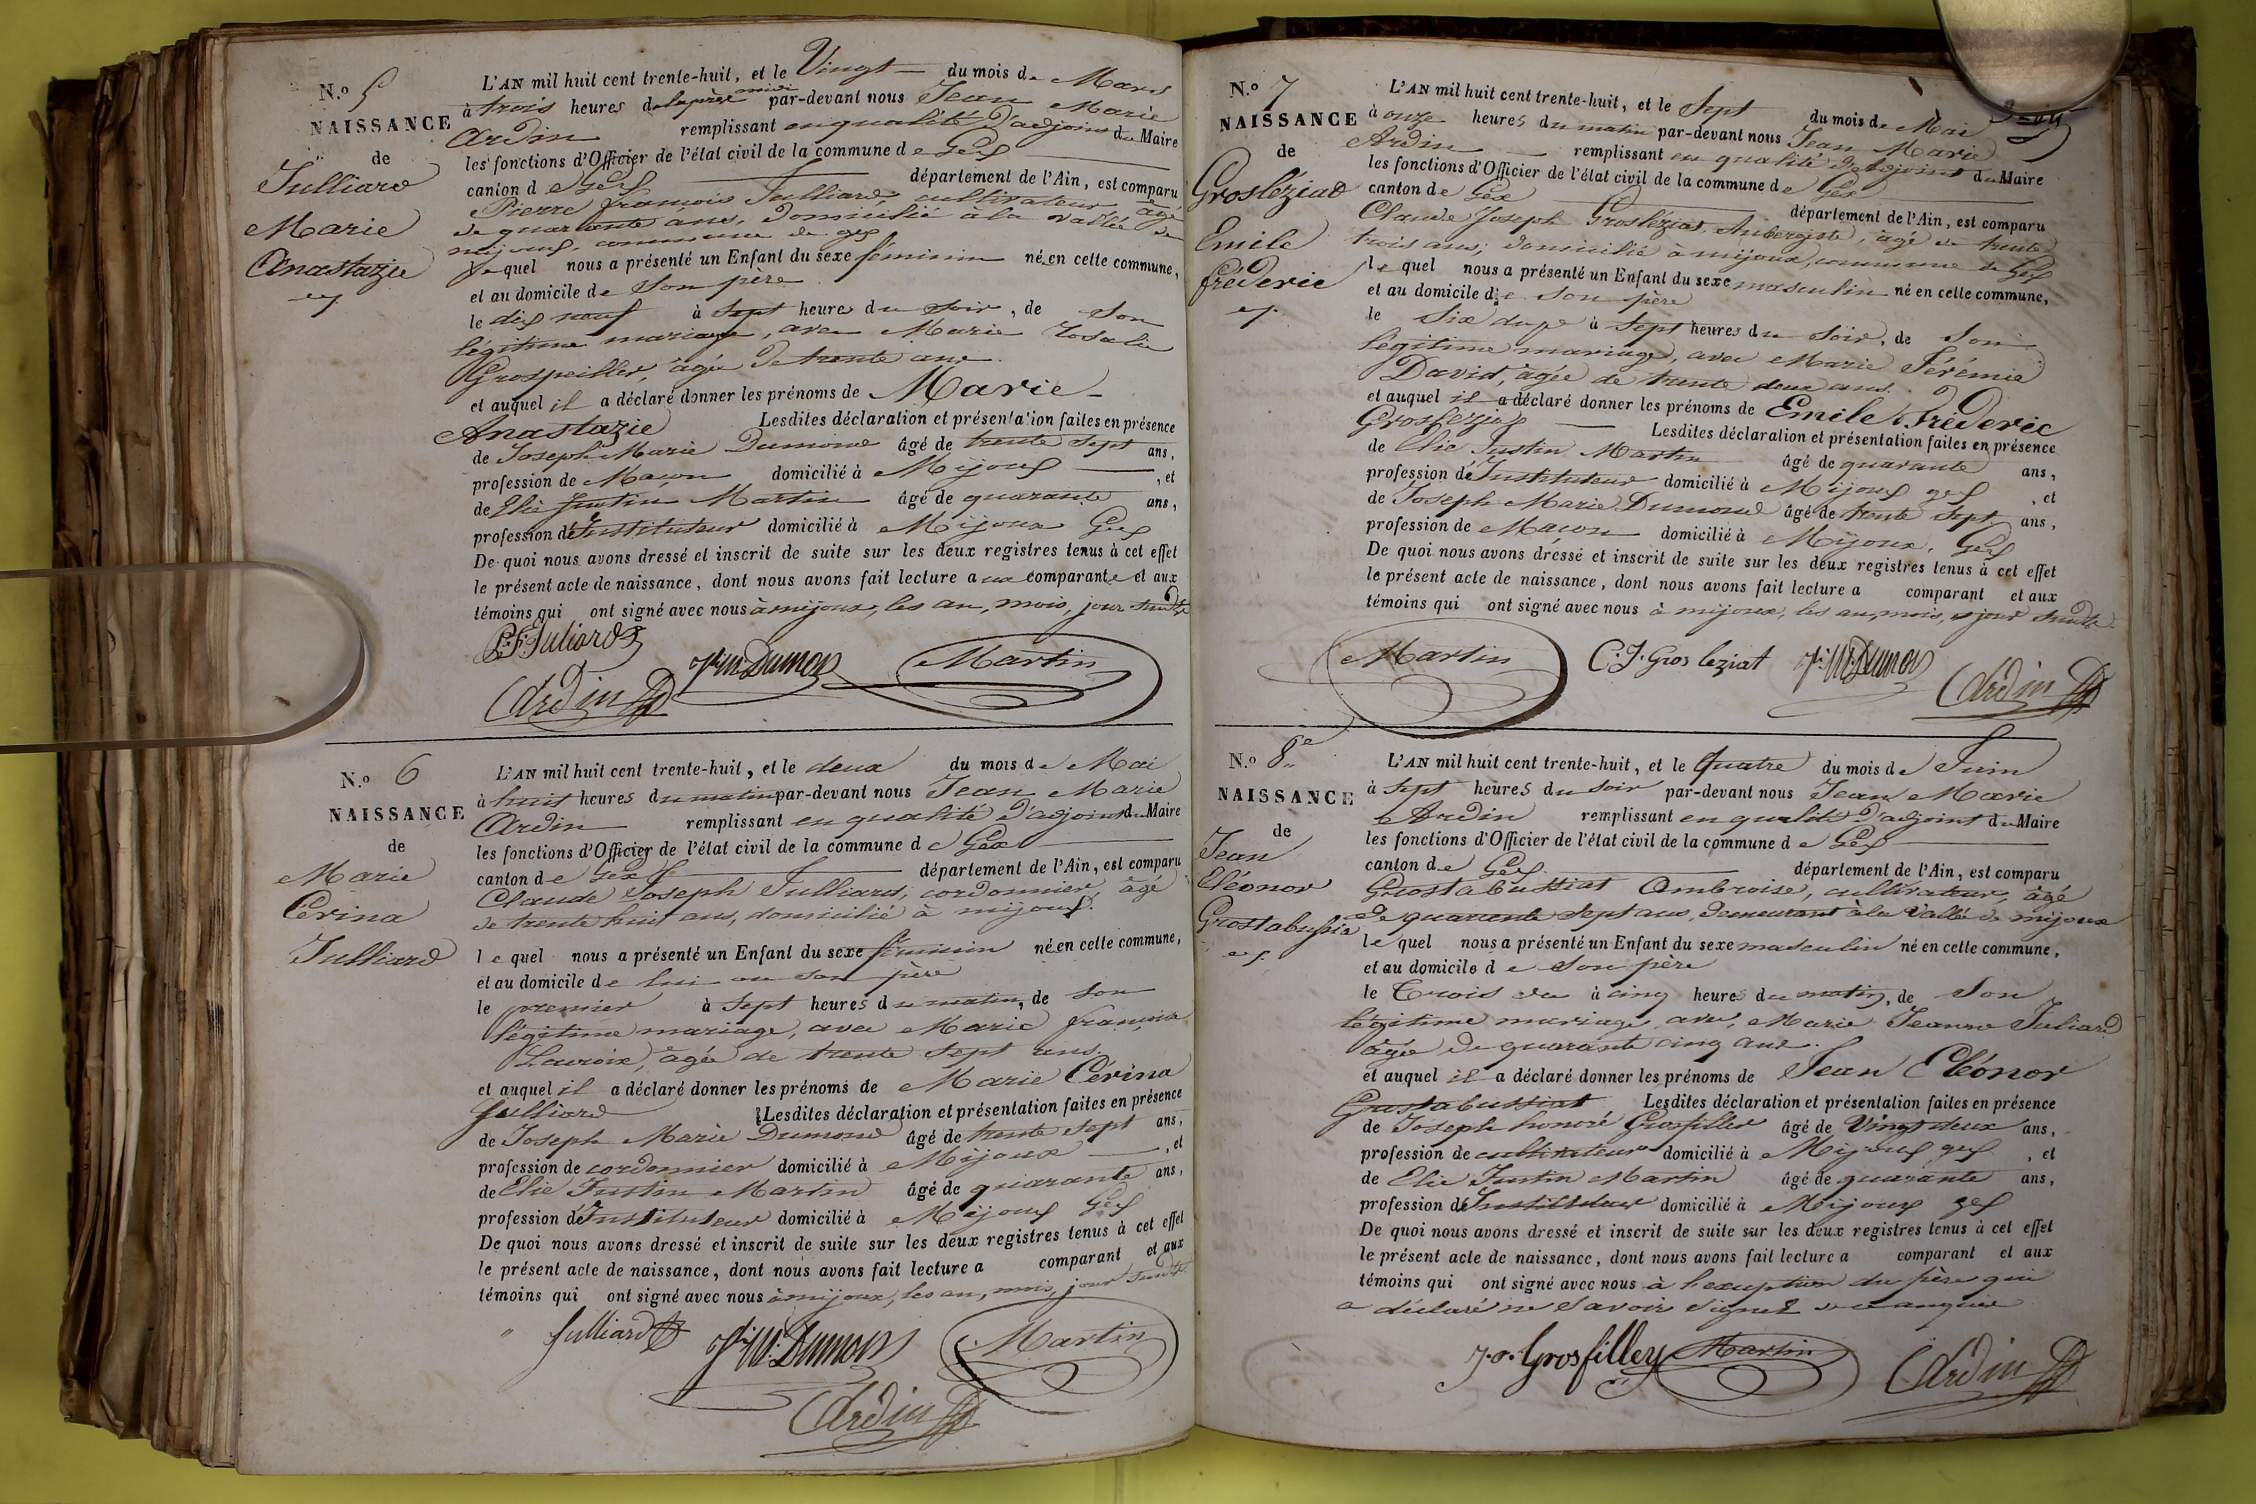 N.o 5
NAISSANCE
de
Julliard
Marie
Anastazie
L'AN mil huit cent trente-huit, et le Vingt du mois de Mars
à trois heures de laprès midi par-devant nous Jean Marie
Ardin remplissant en qualité d'adjoint du Maire
les fonctions d'Officier de l'état civil de la commune de Gex
canton de Gex département de l'Ain, est comparu
Pierre françois Julliard, cultivateur âgé
de quarante ans, domicilié à la vallée de
mijoux, commune de gex
Lequel nous a présenté un Enfant du sexe féminin né en cette commune,
et au domicile de Son père
le dix neuf à Sept heures du Soir, de Son
légitime mariage, avec Marie Rosalie
Grospeiller, âgée de trente ans.
et auquel il a déclaré donner les prénoms de Marie
Anastazie Lesdites déclaration et présentation faites en présence
de Joseph Marie Dumond âgé de trente Sept ans,
profession de Maçon domicilié à Mijoux, et
de Elie Justin Martin âgé de quarante ans,
profession d'Instituteur domicilié à Mijoux Gex
De quoi nous avons dressé et inscrit de suite sur les deux registres tenus à cet effet
le présent acte de naissance, dont nous avons fait lecture au comparant et aux
témoins qui ont signé avec nous à mijoux, les an, mois, jour Susdits
P.F. Juliard
J.M. Dumond Martin
Ardin
N.o 6
NAISSANCE
de
Marie
Cérina
Julliard
L'AN mil huit cent trente-huit, et le deux du mois de Mai
à huit heures du matin par-devant nous Jean Marie
Ardin remplissant en qualité d'adjoint du Maire
les fonctions d'Officier de l'état civil de la commune de Gex
canton de Gex département de l'Ain, est comparu
Claude Joseph Julliard, cordonnier, âgé
de trente huit ans, domicilié à mijoux.
lequel nous a présenté un Enfant du sexe féminin né en cette commune,
et au domicile de lui ou son père
le premier à Sept heures du matin, de Son
légitime mariage, avec Marie françoise
Lacroix, âgée de trente Sept ans.
et auquel il a déclaré donner les prénoms de Marie Cérina
Julliard Lesdites déclaration et présentation faites en présence
de Joseph Marie Dumond âgé de trente Sept ans,
profession de cordonnier domicilié à Mijoux, et
de Elie Justin Martin âgé de quarante ans,
profession d'Instituteur domicilié à Mijoux Gex
De quoi nous avons dressé et inscrit de suite sur les deux registres tenus à cet effet
le présent acte de naissance, dont nous avons fait lecture a comparant et aux
témoins qui ont signé avec nous à mijoux, les an, mois, jour Susdits
Julliard J.M. Dumond Martin
Ardin
N.o 7
NAISSANCE
de
Grosléziat
Emile
fréderic
L'AN mil huit cent trente-huit, et le Sept du mois de Mai
à onze heures du matin par-devant nous Jean Marie
Ardin remplissant en qualité d'Adjoint du Maire
les fonctions d'Officier de l'état civil de la commune de Gex
canton de Gex département de l'Ain, est comparu
Claude Joseph Grosléziat, Aubergiste, âgé de trente
trois ans, domicilié à mijoux, commune de Gex
lequel nous a présenté un Enfant du sexe masculin né en cette commune,
et au domicile de Son père
le Six du à Sept heures du Soir, de Son
légitime mariage, avec Marie Jérémie
David, âgée de trente deux ans.
et auquel il a déclaré donner les prénoms de Emile Fréderic
Grosleziat Lesdites déclaration et présentation faites en présence
de Elie Justin Martin âgé de quarante ans,
profession d'Instituteur domicilié à Mijoux gex, et
de Joseph Marie Dumond âgé de trente Sept ans,
profession de Maçon domicilié à Mijoux, Gex
De quoi nous avons dressé et inscrit de suite sur les deux registres tenus à cet effet
le présent acte de naissance, dont nous avons fait lecture a comparant et aux
témoins qui ont signé avec nous à mijoux, les an, mois, jour Susdits
Martin C.J. Gros leziat J.M. Dumond
Ardin
N.o 8e
NAISSANCE
de
Jean
Eléonor
Grostabussia
L'AN mil huit cent trente-huit, et le Quatre du mois de Juin
à Sept heures du Soir par-devant nous Jean Marie
Ardin remplissant en qualité d'adjoint du Maire
les fonctions d'Officier de l'état civil de la commune de Gex
canton de Gex département de l'Ain, est comparu
Grostabussiat Ambroise, cultivateur, âgé
de quarante Sept ans, demeurant à la Vallé de mijoux
lequel nous a présenté un Enfant du sexe masculin né en cette commune,
et au domicile de Son père
le Trois du à cinq heures du matin, de Son
légitime mariage avec, Marie Jeanne Juliard
âgée de quarante cinq ans.
et auquel il a déclaré donner les prénoms de Jean Eléonor
Grostabussiat Lesdites déclaration et présentation faites en présence
de Joseph honoré Grosfiller âgé de Vingt deux ans,
profession de cultivateur domicilié à Mijoux gex, et
de Elie Justin Martin âgé de quarante ans,
profession d'Instituteur domicilié à Mijoux gex
De quoi nous avons dressé et inscrit de suite sur les deux registres tenus à cet effet
le présent acte de naissance, dont nous avons fait lecture a comparant et aux
témoins qui ont signé avec nous à l'exception du père qui
a déclaré ne Savoir Signer de ce enquis
J.H. Grosfilley Martin Ardin